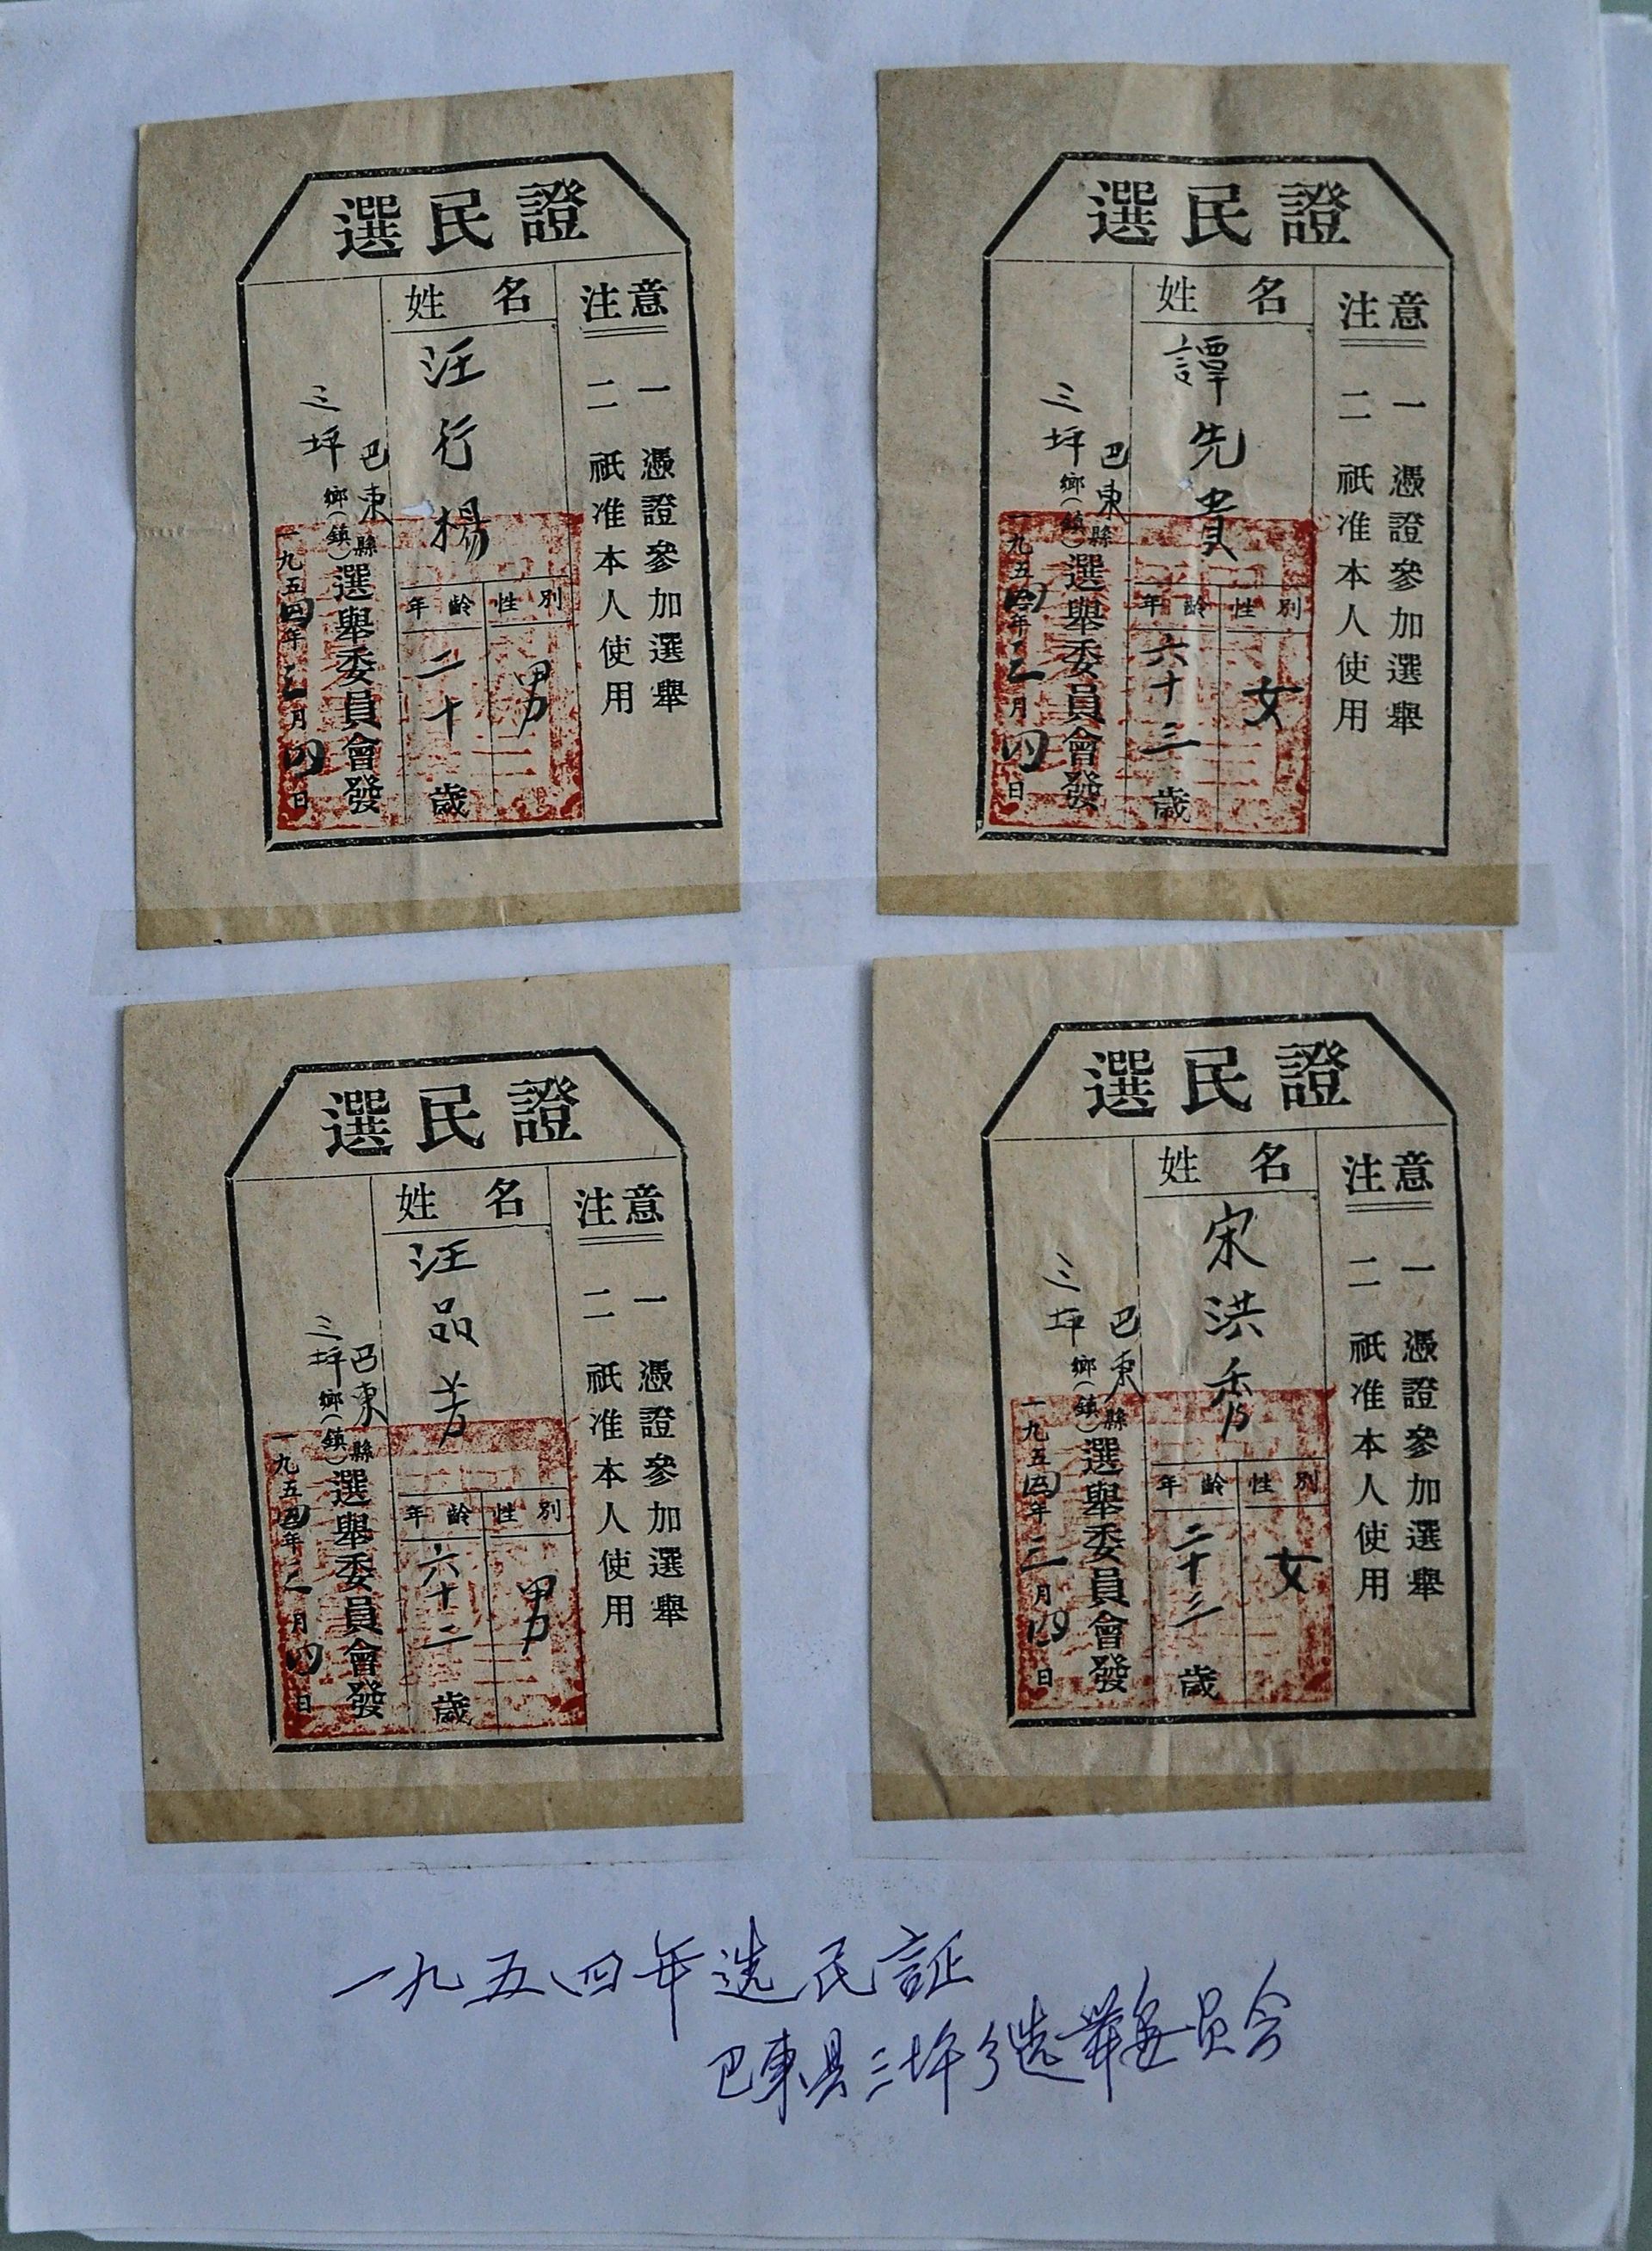 選民證
注意
一 憑證參加選舉
二 祇准本人使用
姓名
汪行楊
性別
男
年齡
二十歲
巴東縣
三坪鄉(鎮)選舉委員會發
一九五四年三月四日
選民證
注意
一 憑證參加選舉
二 祇准本人使用
姓名
譚先貴
性別
女
年齡
六十三歲
巴東縣
三坪鄉(鎮)選舉委員會發
一九五四年三月四日
選民證
注意
一 憑證參加選舉
二 祇准本人使用
姓名
汪品芳
性別
男
年齡
六十二歲
巴東縣
三坪鄉(鎮)選舉委員會發
一九五四年三月四日
選民證
注意
一 憑證參加選舉
二 祇准本人使用
姓名
宋洪香
性別
女
年齡
二十三歲
巴東縣
三坪鄉(鎮)選舉委員會發
一九五四年三月四日
一九五四年选民証
巴東县三坪乡选举委员会